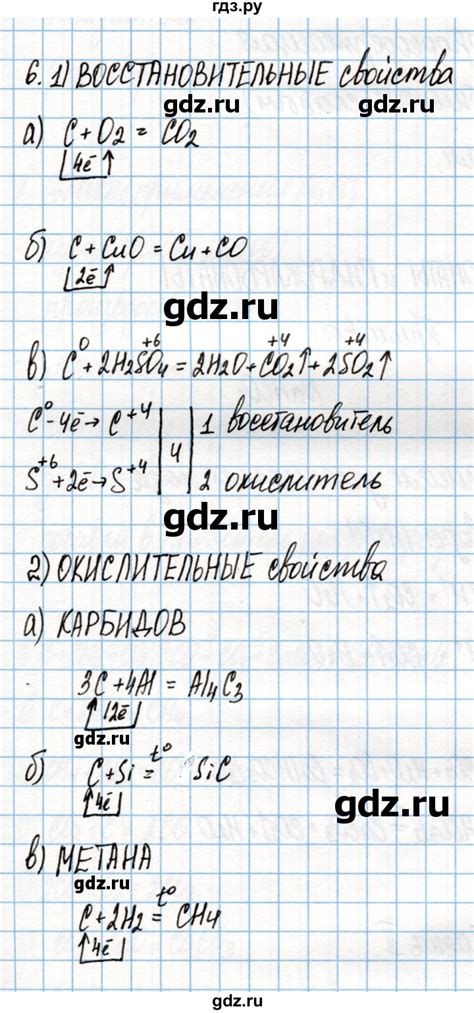 гдз.ру
6. 1) ВОССТАНОВИТЕЛЬНЫЕ свойства
gdz.ru
а) C + O2 = CO2
4ē
б) C + CuO = Cu + CO
2ē
gdz.ru
0 +6 +4 +4
в) C + 2H2SO4 = 2H2O + CO2↑ + 2SO2↑
C0 - 4ē → C+4 | 4 | 1 восстановитель
S+6 + 2ē → S+4 | 2 окислитель
gdz.ru
2) ОКИСЛИТЕЛЬНЫЕ свойства
а) КАРБИДОВ
gdz.ru
3C + 4Al = Al4C3
12ē
б) C + Si = t° SiC
4ē
gdz.ru
в) МЕТАНА
gdz.ru
C + 2H2 = t° CH4
4ē
gdz.ru
gdz.ru